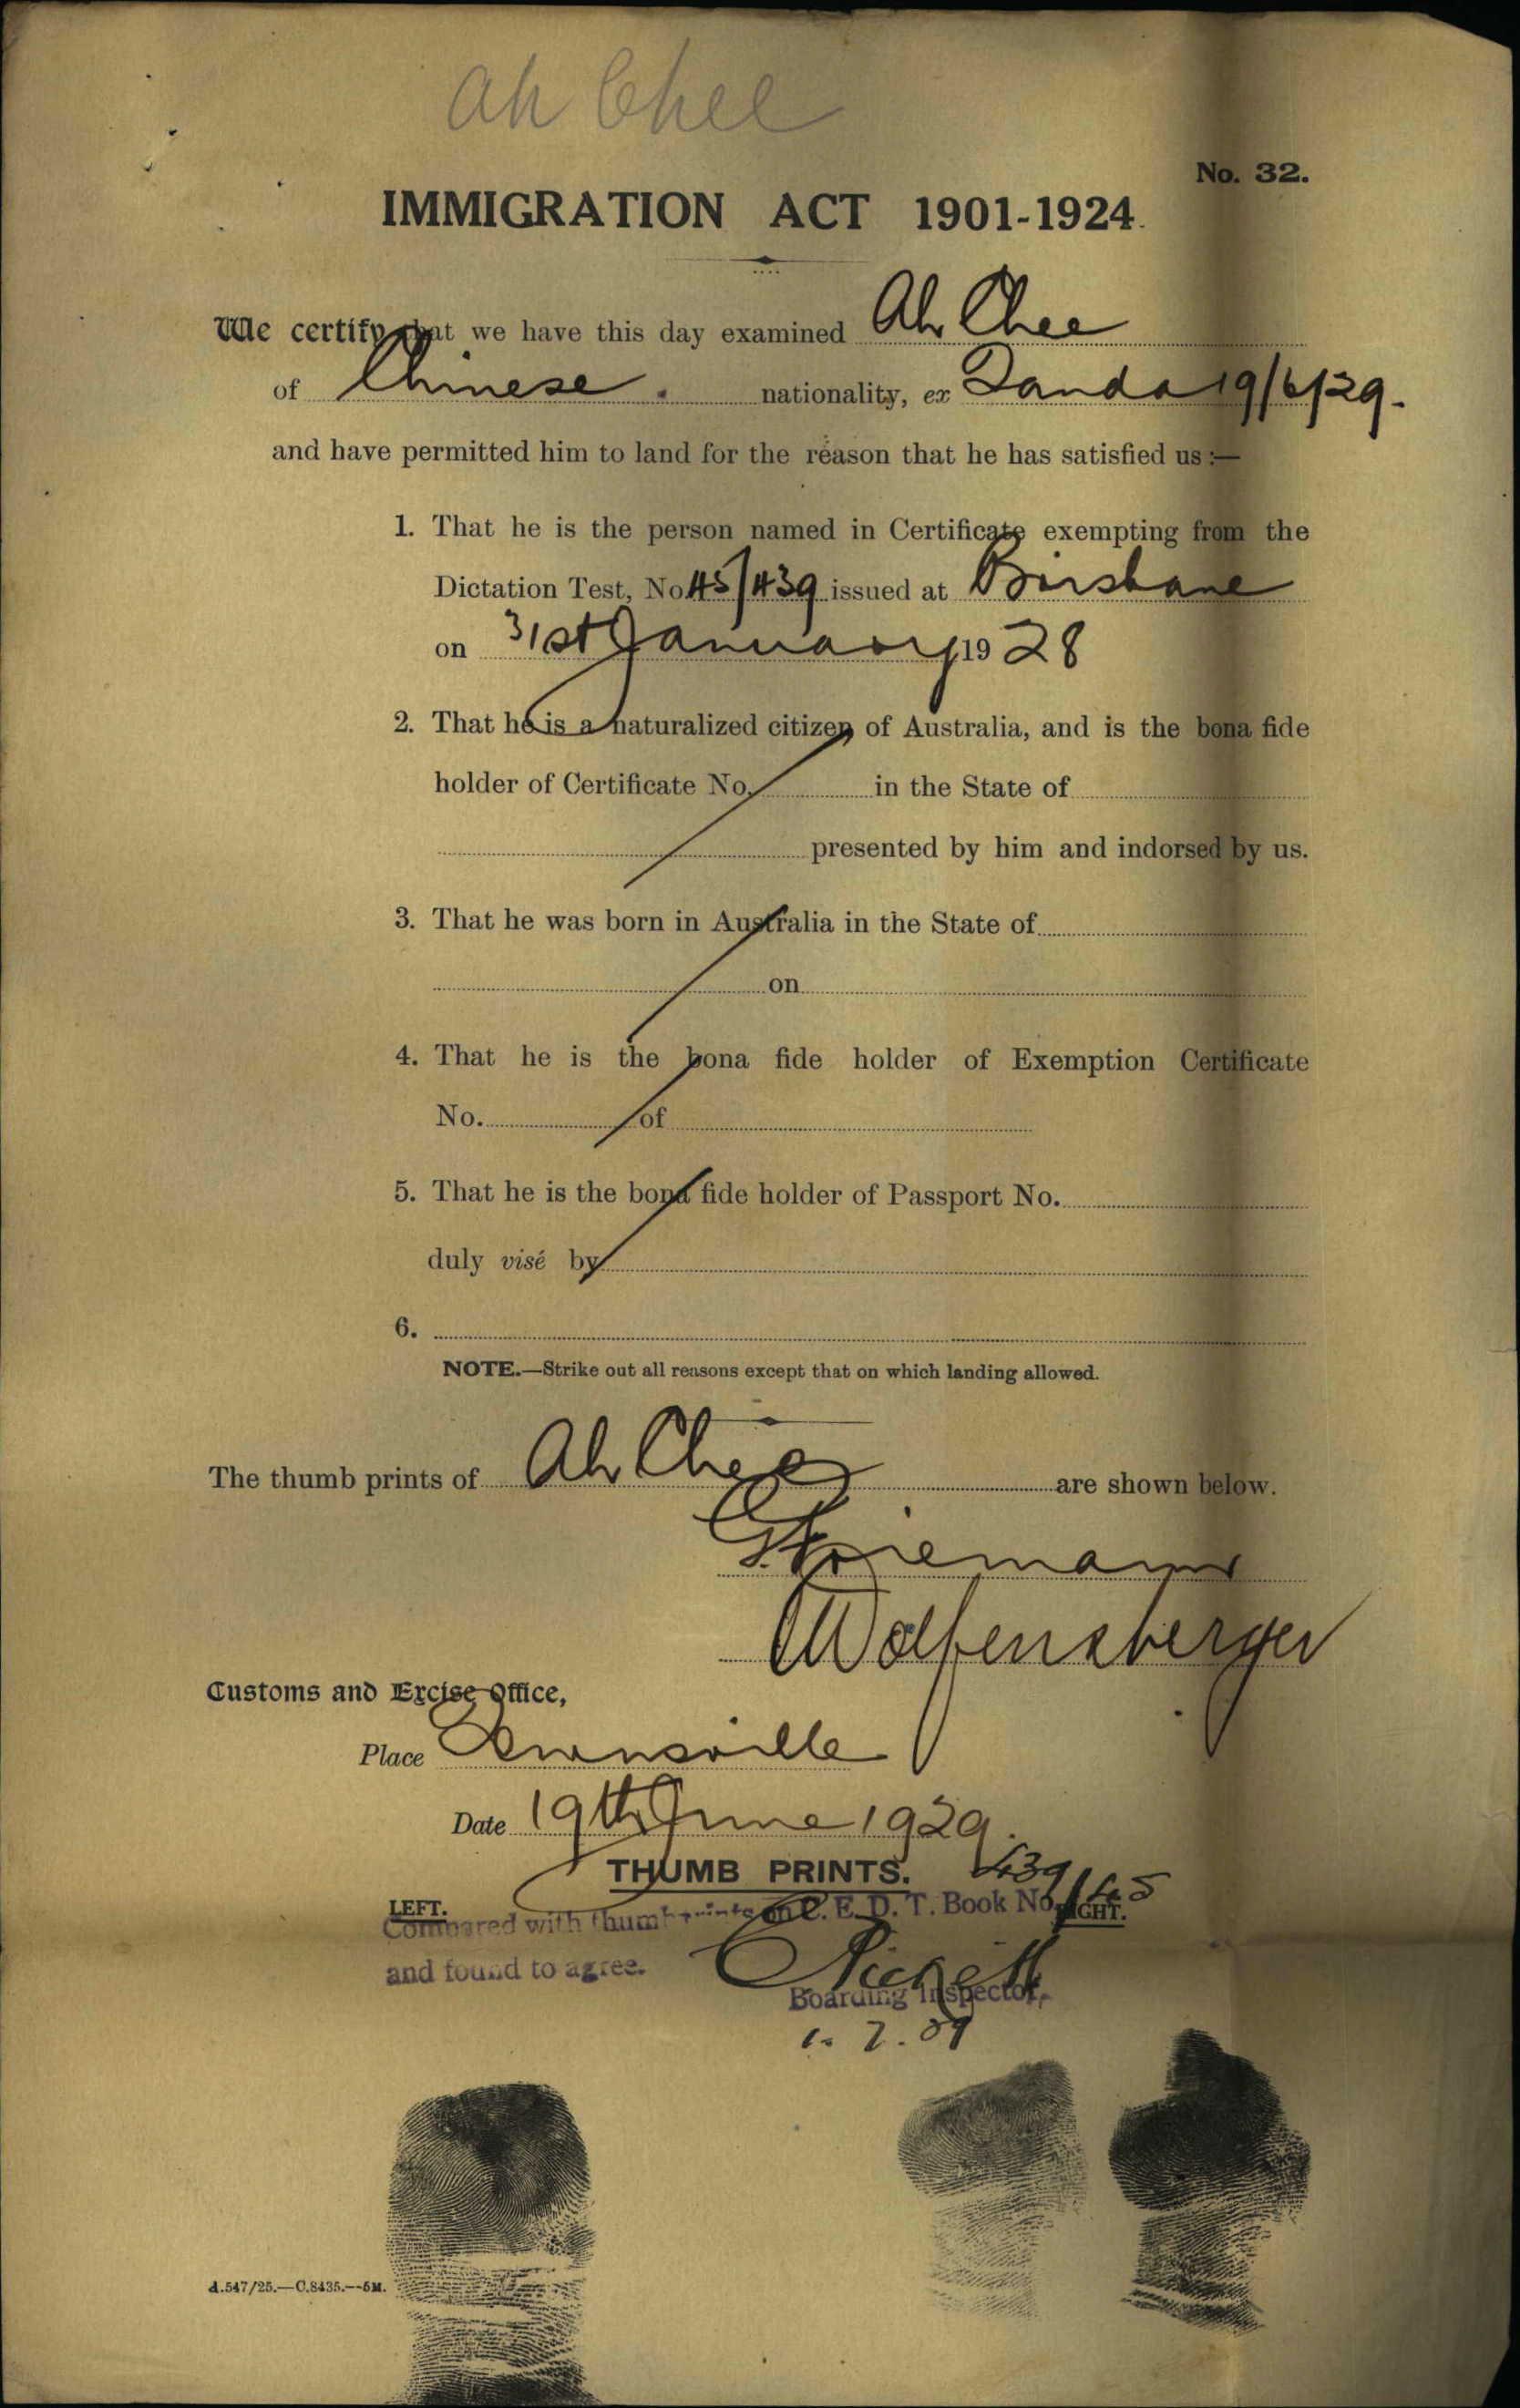 Ah Chee
No. 32.
IMMIGRATION ACT 1901-1924.
We certify that we have this day examined Ah Chee
of Chinese. nationality, ex Tanda 19/6/29.
and have permitted him to land for the reason that he has satisfied us :—
1. That he is the person named in Certificate exempting from the
Dictation Test, No. 45/439 issued at Brisbane
on 31st January 1928
2. That he is a naturalized citizen of Australia, and is the bona fide
holder of Certificate No. in the State of
presented by him and indorsed by us.
3. That he was born in Australia in the State of
on
4. That he is the bona fide holder of Exemption Certificate
No. of
5. That he is the bona fide holder of Passport No.
duly visé by
6.
NOTE.—Strike out all reasons except that on which landing allowed.
The thumb prints of Ah Chee are shown below.
Wolfensberger
Customs and Excise Office,
Place Townsville
Date 19th June 1929.
THUMB PRINTS. 439/45
LEFT. RIGHT.
Compared with thumbprints on C. E. D. T. Book No.
and found to agree.
Boarding Inspector.
1. 7. 29
A.547/25.—C.8435.—5M.